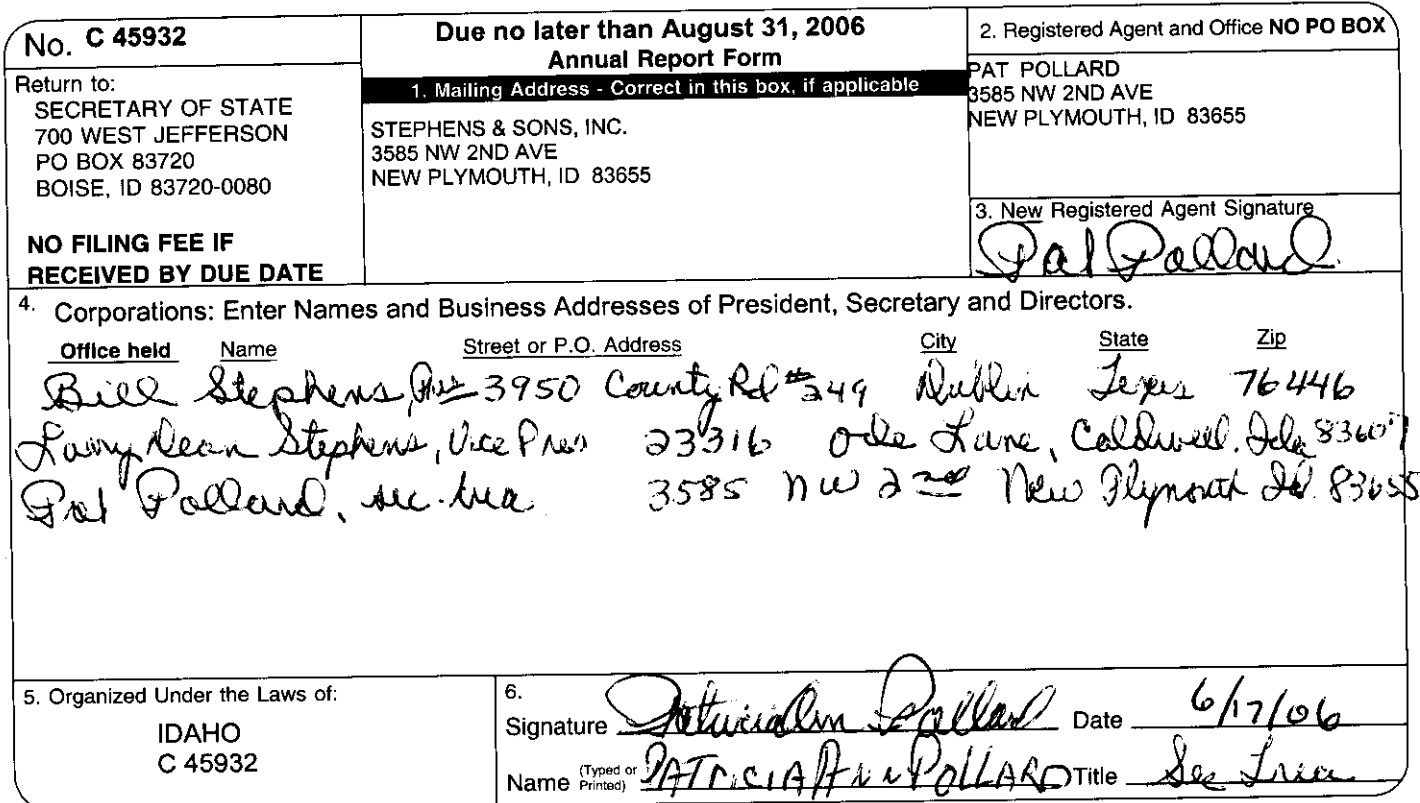 No. C 45932
Due no later than August 31, 2006
Annual Report Form
Return to:
SECRETARY OF STATE
700 WEST JEFFERSON
PO BOX 83720
BOISE, ID 83720-0080
NO FILING FEE IF
RECEIVED BY DUE DATE
1. Mailing Address - Correct in this box, if applicable
STEPHENS & SONS, INC.
3585 NW 2ND AVE
NEW PLYMOUTH, ID 83655
2. Registered Agent and Office NO PO BOX
PAT POLLARD
3585 NW 2ND AVE
NEW PLYMOUTH, ID 83655
3. New Registered Agent Signature
Pat Pollard
4. Corporations: Enter Names and Business Addresses of President, Secretary and Directors.
Office held Name Street or P.O. Address City State Zip
Bill Stephens, Pres 3950 County Rd #249 Dublin Texas 76446
Larry Dean Stephens, Vice Pres 23316 Lane, Caldwell, Ida 83607
Pat Pollard, sec. trea 3585 NW 2nd New Plymouth Id. 83655
5. Organized Under the Laws of:
IDAHO
C 45932
6.
Signature Patricia Ann Pollard Date 6/17/06
Name (Typed or Printed) PATRICIA ANN POLLARD Title Sec Trea